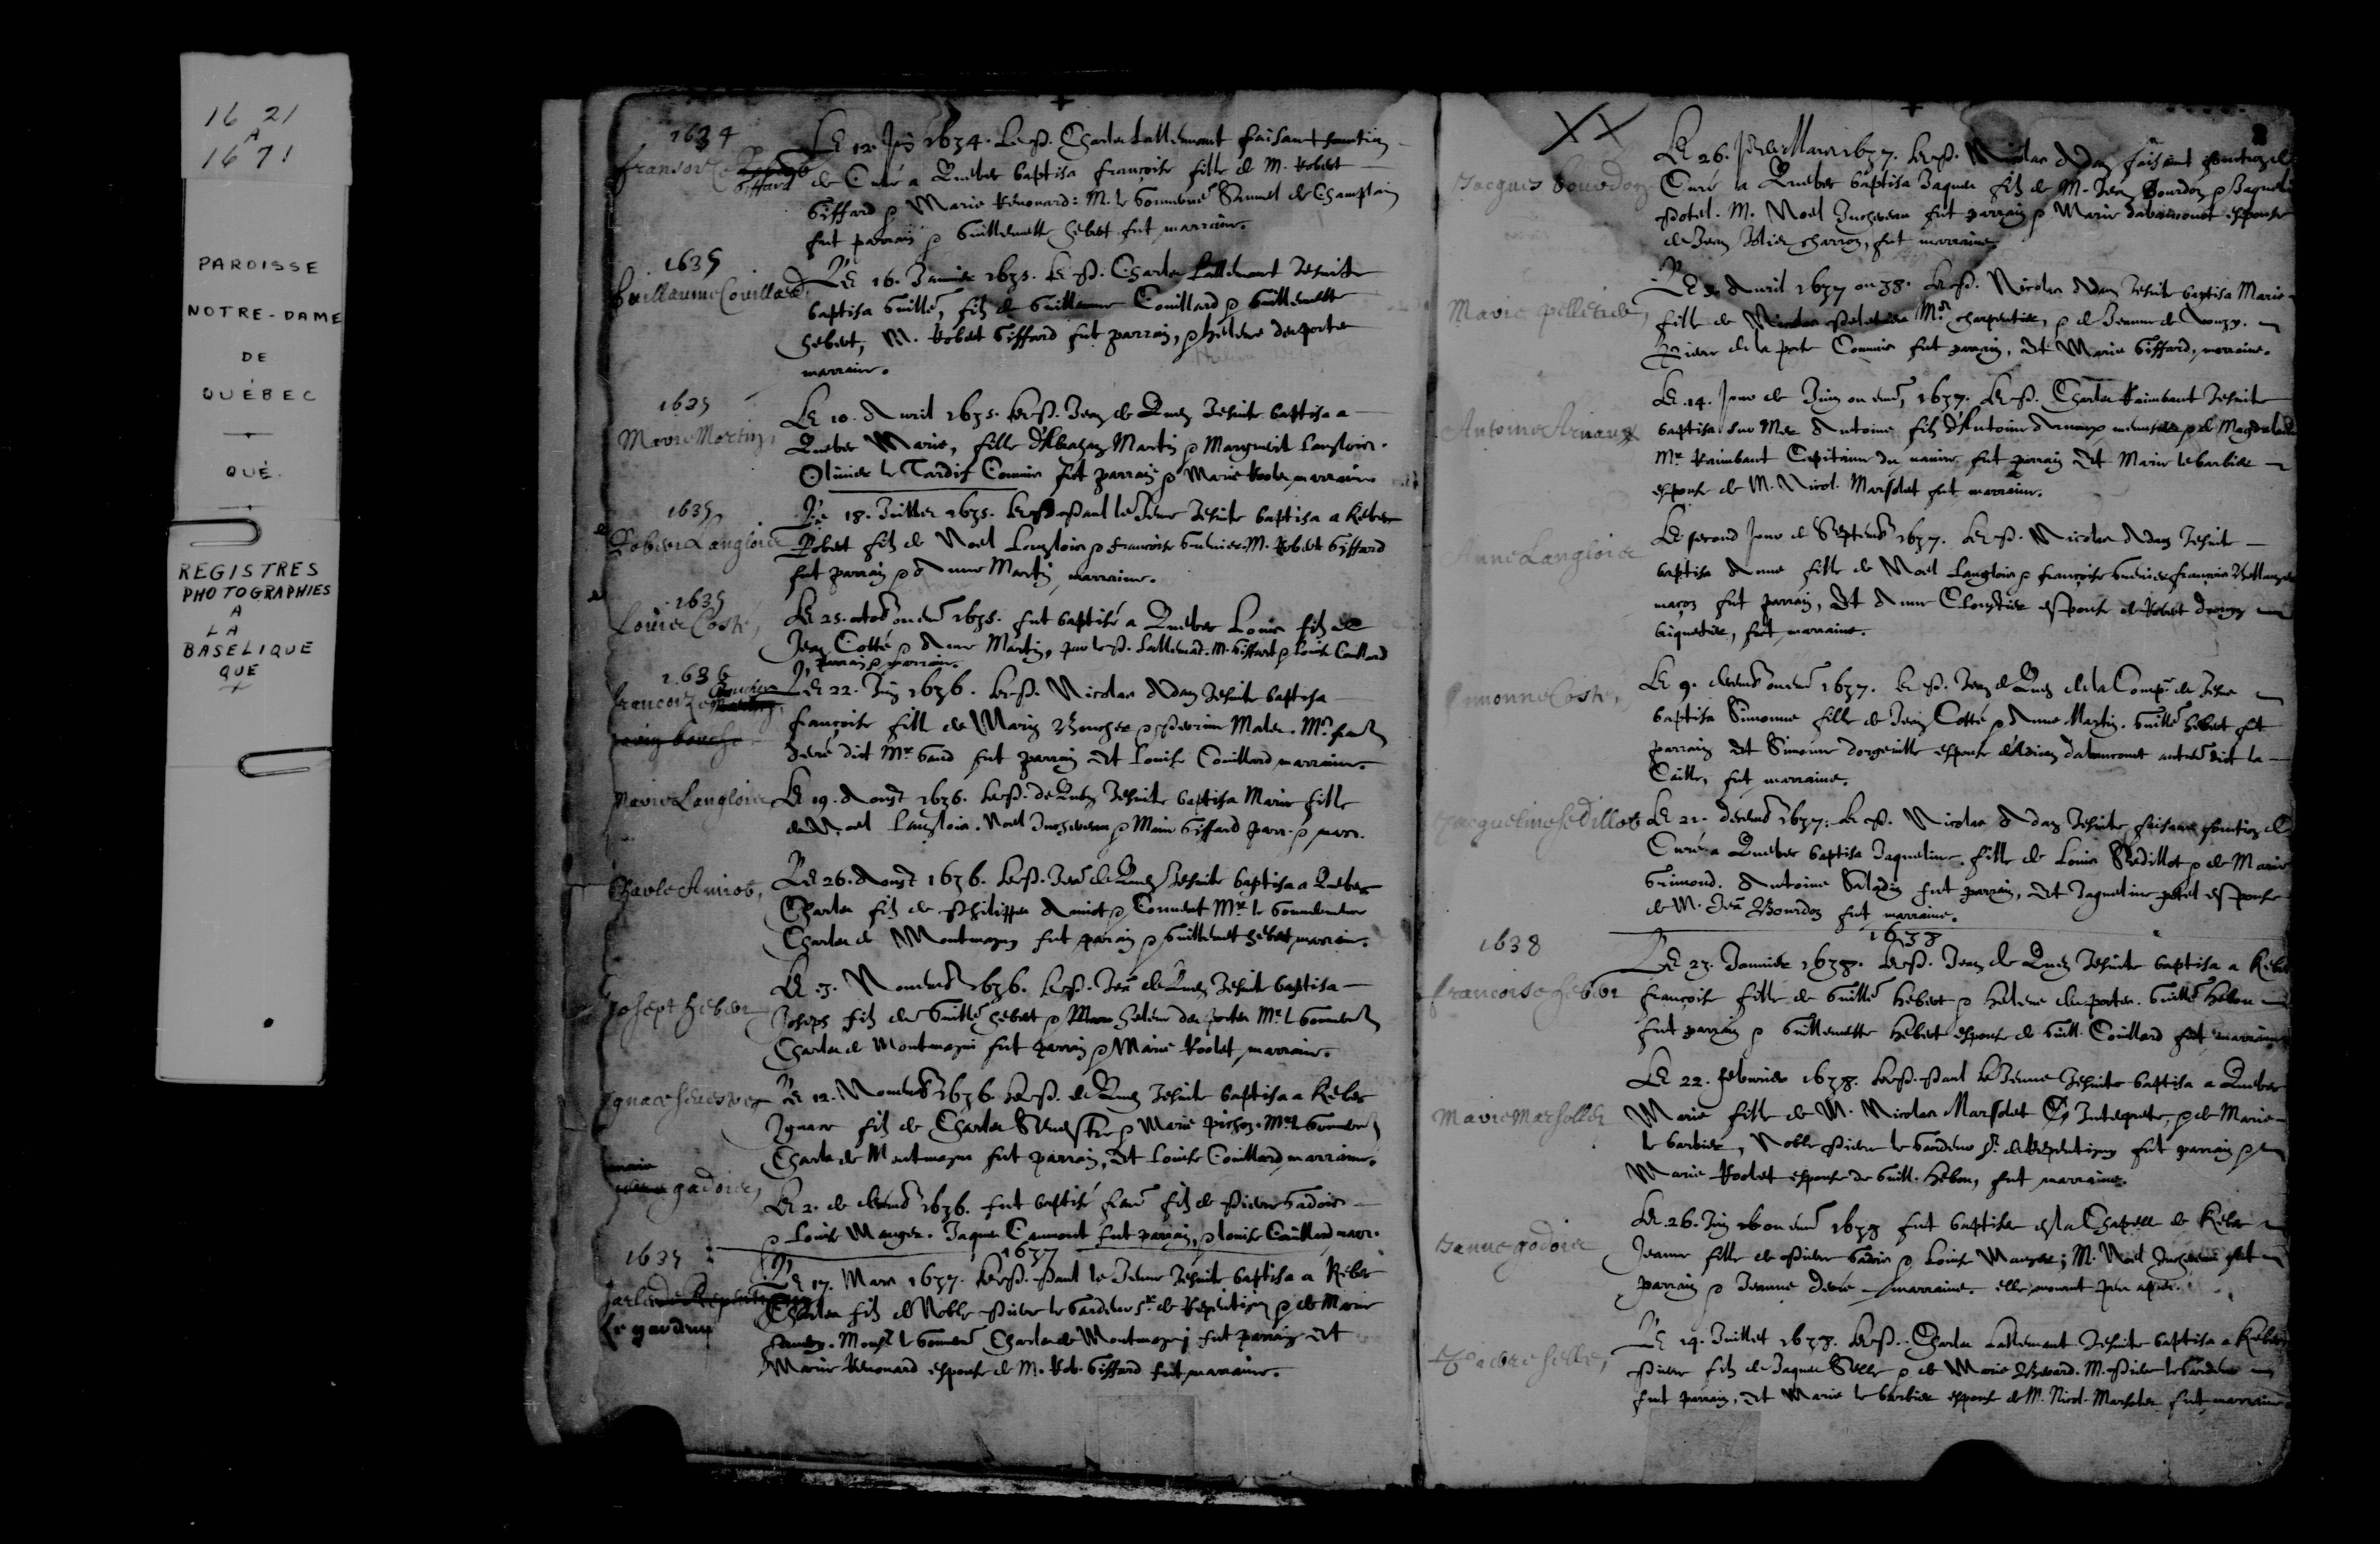 16 21
A
16 71
PAROISSE
NOTRE-DAME
DE
QUÉBEC
QUÉ.
REGISTRES
PHOTOGRAPHIES
A
LA
BASELIQUE
QUE
1634
Giffard
Le 12. 1634. Le P. Charles Lallemant faisant fonction
de Curé a Quebec baptisa françoise fille de M. Robert
Giffard & Marie Renouard: M. le Gouverneur Samuel de Champlain
fut parrain & Guillemette hebert fut marraine.
1635
Guillaume Couillard
Le 16. Januier 1635. Le P. Charles Lallemant Jesuite
baptisa Guille, filz de Guillaume Couillard & Guillemette
hebert, M. Robert Giffard fut parrain, & helene des portes
marraine.
1635
Marie Martin,
Le 10. Auril 1635. Le P. Jean de Quen Jesuite baptisa a
Quebec Marie, fille d'Abraham Martin & Marguerite Langlois.
Oliuier le Tardif Commis fut parrain & Marie Rolet marraine
1635
Robert Langlois
Le 18. Juillet 1635. Le P. Paul le Jeune Jesuite baptisa a Kebec
Robert filz de Noel Langlois & francoise Grenier. M. Robert Giffard
fut parrain & Anne Martin marraine.
1635
Louis Costé,
Le 25. 1635. fut baptisé a Quebec Louis filz de
Jean Cotté & Anne Martin, par le P. Lallemant. M. Giffard & Louise Couillard
parrain & marraine.
1636
francoize Boucher
Le 22. Juin 1636. Le P. Nicolas Adam Jesuite baptisa
françoise fille de Marin Boucher & Perrine Malet. Mr
Deré dict Mr Gand fut parrain et Louise Couillard marraine.
Marie Langlois
Le 19. Aoust 1636. Le P. de Quen Jesuite baptisa Marie fille
de Noel Langlois. Noel Juchereau & Marie Giffard parr. & marr.
Charle Amiot,
Le 26. Aoust 1636. Le P. Jean de Quen Jesuite baptisa a Quebec
Charles filz de Philippes Amiot & Convent Mr le Gouverneur
Charles de Montmagny fut parrain & Guillemet hebert marraine.
Joseph heber
Le 3. Nouembre 1636. Le P. Jean de Quen Jesuite baptisa
Joseph filz de Guille hebert & helene des portes Mr le Gouverneur
Charles de Montmagni fut parrain & Marie Rolet marraine.
Le 12. Nouembre 1636. Le P. de Quen Jesuite baptisa a Kebec
Ignace filz de Charles Seuestre & Marie Pichon. Mr le Gouverneur
Charle de Montmagni fut parrain, et Louise Couillard marraine.
marie
gadois,
Le 2. de decemb 1636. fut baptisé filz de Pierre Gadois
& Louise Mauger. Jaques Caumont fut parrain, & louise Couillard marr.
1637
1637
de Repentigny
le gardeur
Le 17. Mars 1637. Le P. Paul le Jeune Jesuite baptisa a Kebec
Charles filz de Noble Pierre le Gardeur Sr de Repentigni & de Marie
fauery. Monsr le Gouverneur Charles de Montmagni fut parrain et
Marie Renouard espouse de M. Rob. Giffard fut marraine.
XX
Jacques bourdon
Le 26. Mars 1637. Le P. Nicolas Adam faisant fonction de
Curé a Quebec baptisa Jaques filz de M. Jean Bourdon & Jaqueline
Potel. M. Noel Juchereau fut parrain & Marie espouse
de Jean Jolier charron, fut marraine.
Marie pelletier,
Le 3. Auril 1637 ou 38. Le P. Nicolas Adam Jesuite baptisa Marie
fille de Nicolas Peletier Mr charpentier, & de Jeanne de Vouzy.
Pierre de la porte Commis fut parrain, et Marie Giffard, marraine.
Antoine Arnaux
Le 14. Jour de Juin ou 1637. Le P. Charles Raimbaut Jesuite
baptisa sur Mer Antoine filz d'Antoine & de Magdelaine
Mr Raimbaut Capitaine du nauire fut parrain et Marie le barbier
espouse de M. Nicol. Marsolet fut marraine.
Anne Langlois
Le second Jour de Septemb 1637. Le P. Nicolas Adam Jesuite
baptisa Anne fille de Noel Langlois & françoise Grenier françois Bellanger
maçon fut parrain, et Anne Cloustier espouse de Robert Drouin
briquetier, fut marraine.
Simonne Costé,
Le 9. 1637. Le P. Jean de Quen de la Compie de Jesus
baptisa Simonne fille de Jean Cotté & Anne Martin. Guille Hebert fut
parrain et Simonne dorgeuille espouse d'Adrien dabancourt dict la
Caille, fut marraine.
Jacqueline Sedillot
Le 21. decemb 1637. Le P. Nicolas Adam Jesuite faisant fonction de
Curé a Quebec baptisa Jaqueline fille de Louis Sedillot & de Marie
Grimond. Antoine Saladin fut parrain, et Jaqueline potel espouse
de M. Jean Bourdon fut marraine.
1638
1638
francoise heber
Le 23. Januier 1638. Le P. Jean de Quen Jesuite baptisa a Kebec
françoise fille de Guille Hebert & Helene des portes. Guille Hebou
fut parrain & Guillemette Hebert espouse de Guill. Couillard fut marraine
Marie Marsollet
Le 22. feburier 1638. Le P. Paul le Jeune Jesuite baptisa a Quebec
Marie fille de M. Nicolas Marsolet Interprete, & de Marie
le barbier, Noble Pierre le Gardeur Sr de Repentigny fut parrain &
Marie Rolet espouse de Guill. Hebou, fut marraine.
Janne gadois
Le 26. Juin 1638 fut baptisee en la Chapelle de Kebec
Jeanne fille de Pierre Gadois & Louise Mauger; M. Noel Juchereau fut
parrain & Jeanne marraine. elle mourut peu apres.
Le 14. Juillet 1638. Le P. Charles Lallemant Jesuite baptisa a Kebec
Pierre filz de Jaques Selle & de Marie Berard. M. Pierre le Gardeur
fut parrain, et Marie le barbier espouse de M. Nicol. Marsolet fut marraine